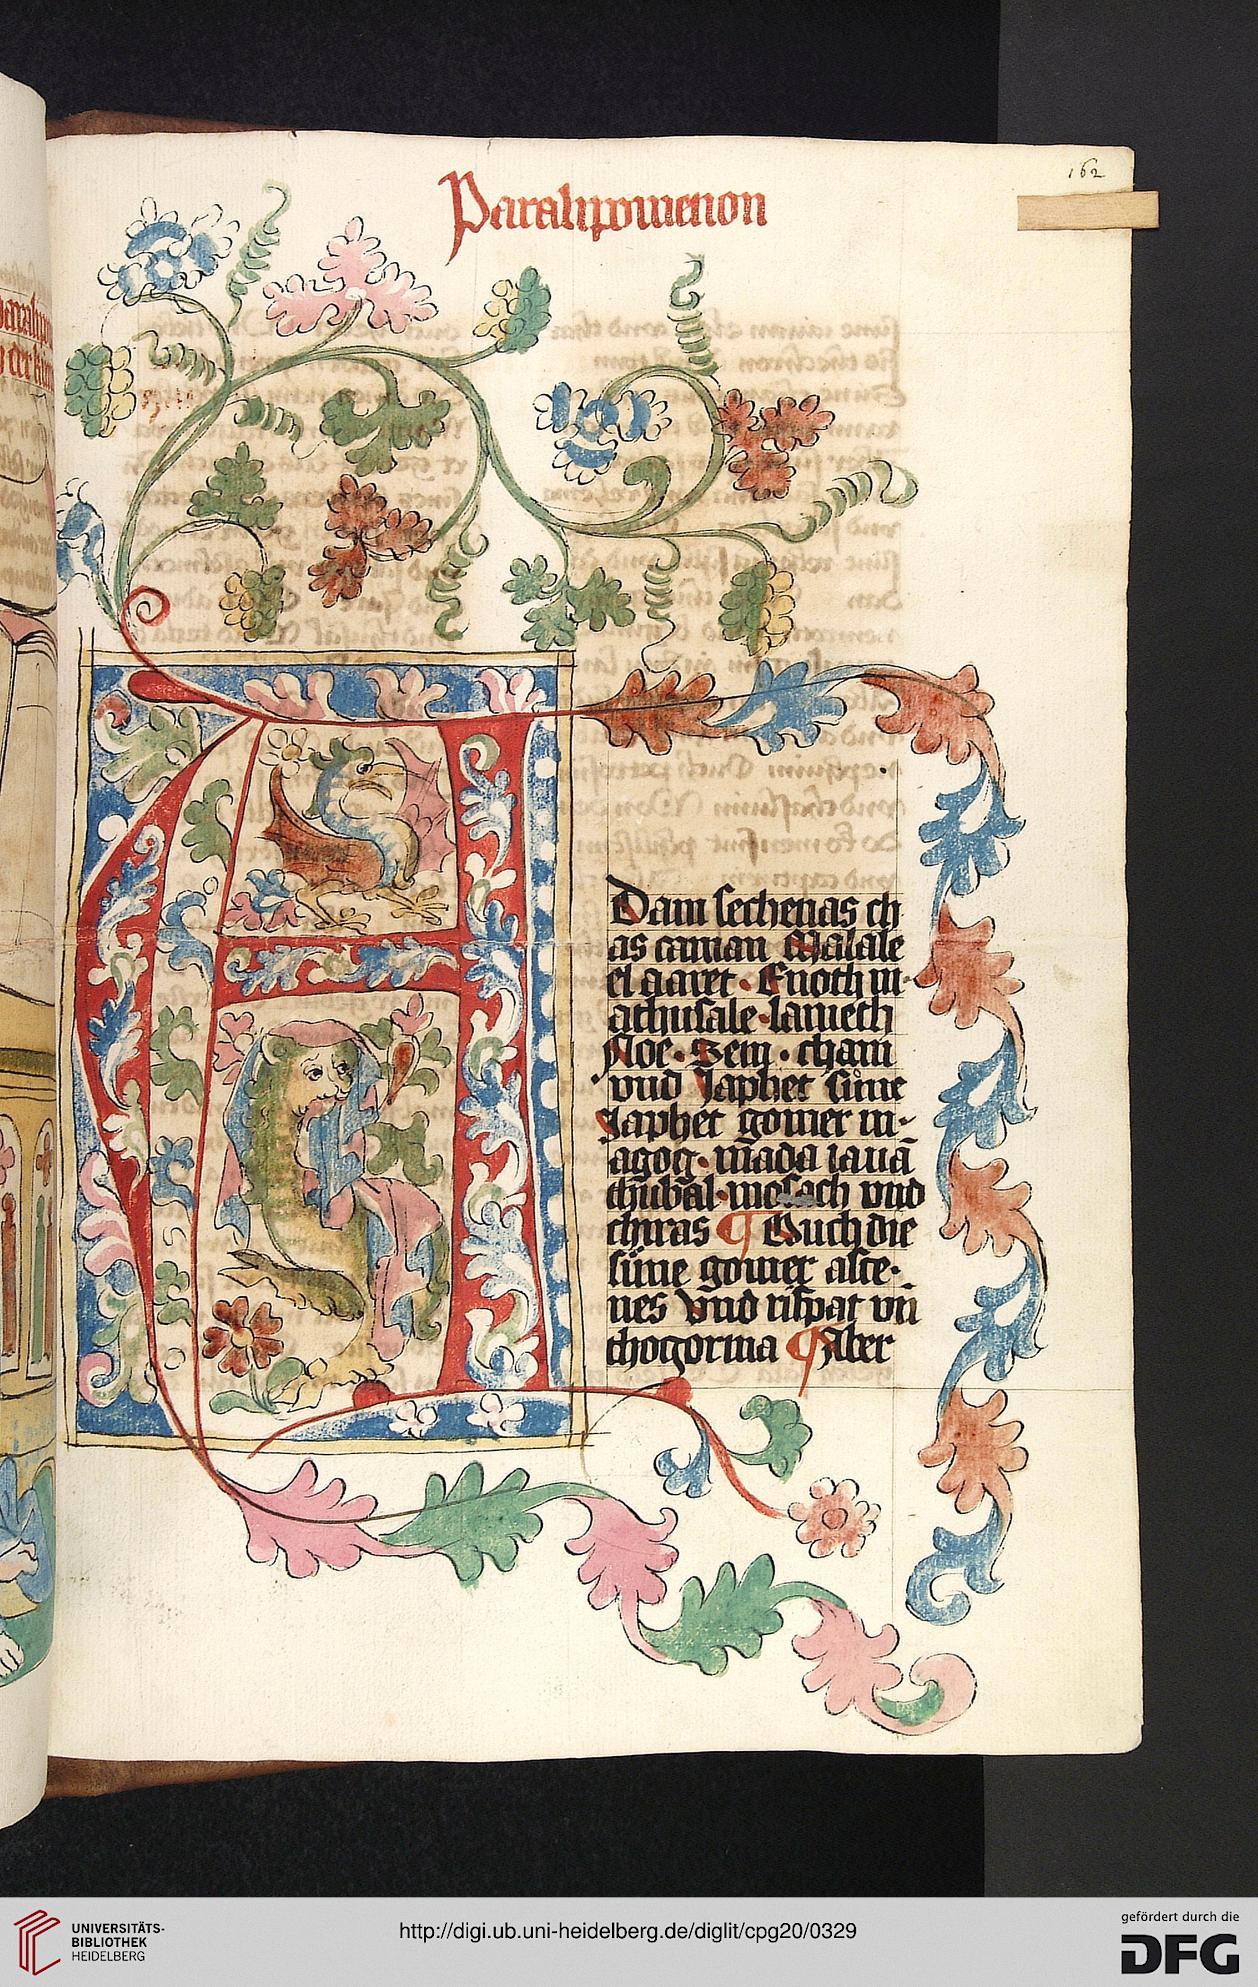 162
Paralipomenon
A
Dam sechenas ch
as cainan Malale
el aaret · Enoth m-
athusale · lameth
Noe · Sem · cham
vnd Japhet süne
Japhet gomer m-
agog · mada iaua
thubal · mosach vnd
thiras ¶ Ouch die
süne gomer asce-
nes Vnd rifpat vn̄
thogorma ¶ Aber
UNIVERSITÄTS-
BIBLIOTHEK
HEIDELBERG
http://digi.ub.uni-heidelberg.de/diglit/cpg20/0329
gefördert durch die
DFG